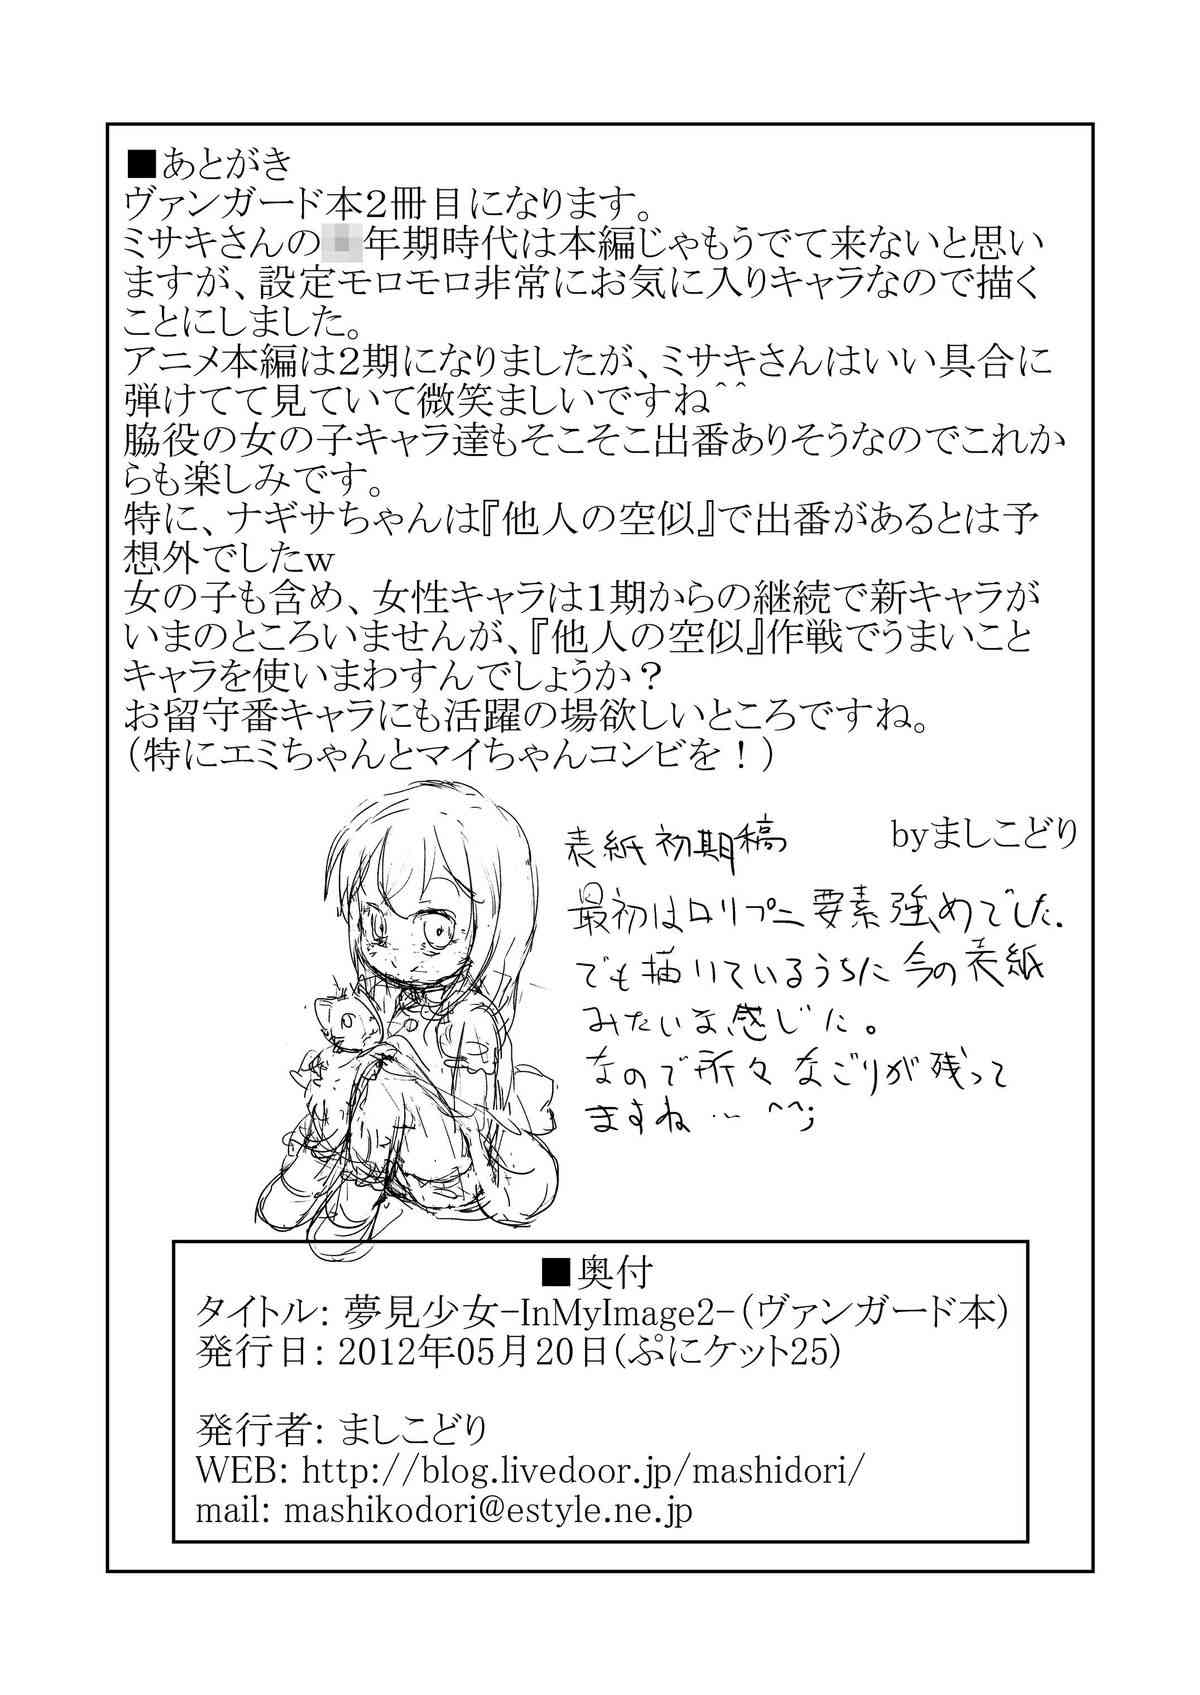 ■あとがき
ヴァンガード本２冊目になります。
ミサキさんの年期時代は本編じゃもうでて来ないと思い
ますが、設定モロモロ非常にお気に入りキャラなので描く
ことにしました。
アニメ本編は２期になりましたが、ミサキさんはいい具合に
弾けてて見ていて微笑ましいですね＾＾
脇役の女の子キャラ達もそこそこ出番ありそうなのでこれか
らも楽しみです。
特に、ナギサちゃんは『他人の空似』で出番があるとは予
想外でしたｗ
女の子も含め、女性キャラは１期からの継続で新キャラが
いまのところいませんが、『他人の空似』作戦でうまいこと
キャラを使いまわすんでしょうか？
お留守番キャラにも活躍の場欲しいところですね。
（特にエミちゃんとマイちゃんコンビを！）
byましこどり
表紙初期稿
最初はロリプニ要素強めでした.
でも描いているうちに今の表紙
みたいな感じに。
なので所々なごりが残って
ますね… ^^;
■奥付
タイトル: 夢見少女-InMyImage2-(ヴァンガード本)
発行日: 2012年05月20日(ぷにケット25)
発行者: ましこどり
WEB: http://blog.livedoor.jp/mashidori/
mail: mashikodori@estyle.ne.jp